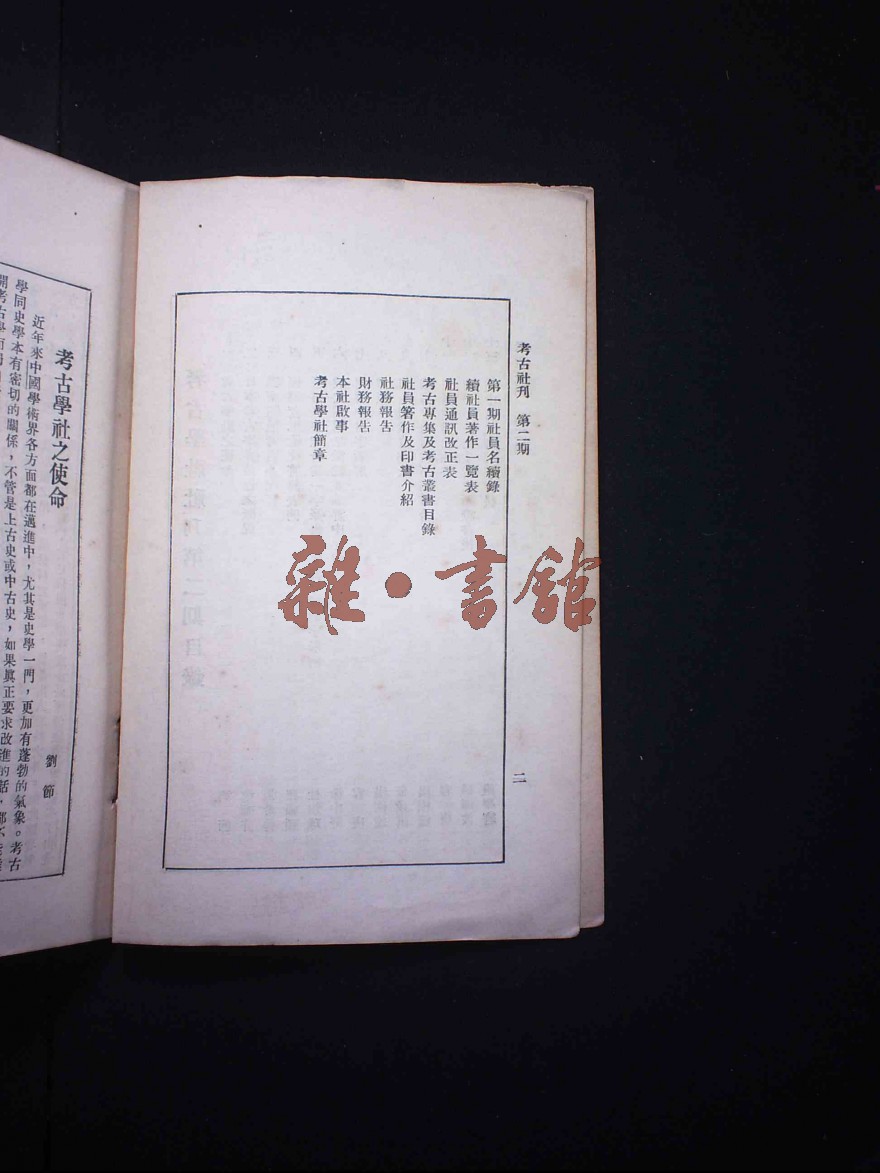 考古社刊　第二期
二
第一期社員名續錄
續社員著作一覽表
社員通訊改正表
考古專集及考古叢書目錄
社員著作及印書介紹
社務報告
財務報告
本社啟事
考古學社簡章
雜·書館
考古學社之使命
劉節
近年來中國學術界各方面都在邁進中，尤其是史學一門，更加有蓬勃的氣象。考古
學同史學本有密切的關係，不管是上古史或中古史，如果眞正要求改進的話，都